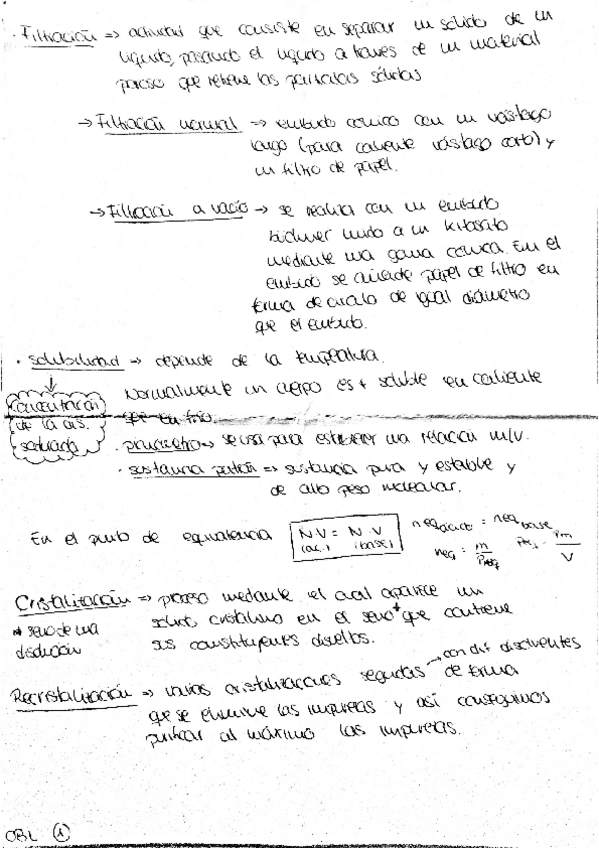 · Filtración => actividad que consiste en separar un sólido de un
líquido, pasando el líquido a través de un material
poroso que retiene las partículas sólidas
→ Filtración normal => embudo cónico con un vástago
largo (para caliente vástago corto) y
un filtro de papel.
→ Filtración a vacío → se realiza con un embudo
büchner unido a un kitasato
mediante una goma cónica. En el
embudo se añade papel de filtro en
forma de círculo de igual diámetro
que el embudo.
· Solubilidad → depende de la temperatura.
Normalmente un cuerpo es + soluble en caliente
que en frío.
concentración
de la dis.
saturada
· picnómetro → se usa para establecer una relación m/v.
· sustancia patrón => sustancia pura y estable y
de alto peso molecular.
En el punto de equivalencia N·V = N·V
(ac.) (base)
neq ácido = neq base
neq = m / Peq
Peq = Pm / V
Cristalización => proceso mediante el cual aparece un
sólido cristalino en el seno* que contiene
sus constituyentes disueltos.
* seno de una
disolución
Recristalización => varias cristalizaciones seguidas de forma
→ con dif disolventes
que se eliminen las impurezas y así conseguimos
purificar al máximo las impurezas.
OBL 1